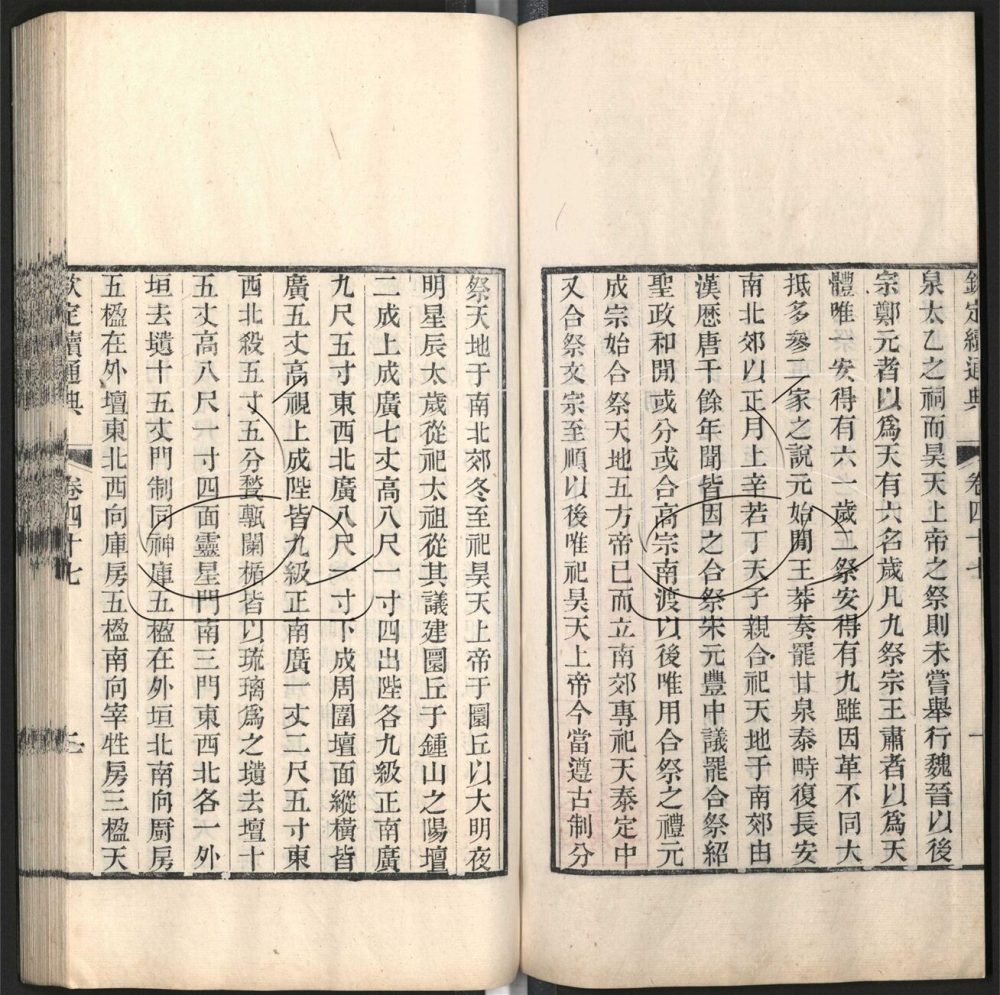 欽定續通典 卷四十七 一
泉太乙之祠而昊天上帝之祭則未嘗舉行魏晉以後
宗鄭元者以爲天有六名歲凡九祭宗王肅者以爲天
體唯一安得有六一歲二祭安得有九雖因革不同大
抵多參二家之說元始閒王莽奏罷甘泉泰畤復長安
南北郊以正月上辛若丁天子親合祀天地于南郊由
漢歴唐千餘年閒皆因之合祭宋元豐中議罷合祭紹
聖政和閒或分或合高宗南渡以後唯用合祭之禮元
成宗始合祭天地五方帝已而立南郊專祀天泰定中
又合祭文宗至順以後唯祀昊天上帝今當遵古制分
祭天地于南北郊冬至祀昊天上帝于圜丘以大明夜
明星辰太歲從祀太祖從其議建圜丘于鍾山之陽壇
二成上成廣七丈高八尺一寸四出陛各九級正南廣
九尺五寸東西北廣八尺一寸下成周圍壇面縱橫皆
廣五丈高視上成陛皆九級正南廣一丈二尺五寸東
西北殺五寸五分甃甎闌楯皆以琉璃爲之壝去壇十
五丈高八尺一寸四面靈星門南三門東西北各一外
垣去壝十五丈門制同神庫五楹在外垣北南向厨房
五楹在外壇東北西向庫房五楹南向宰牲房三楹天
欽定續通典 卷四十七 二